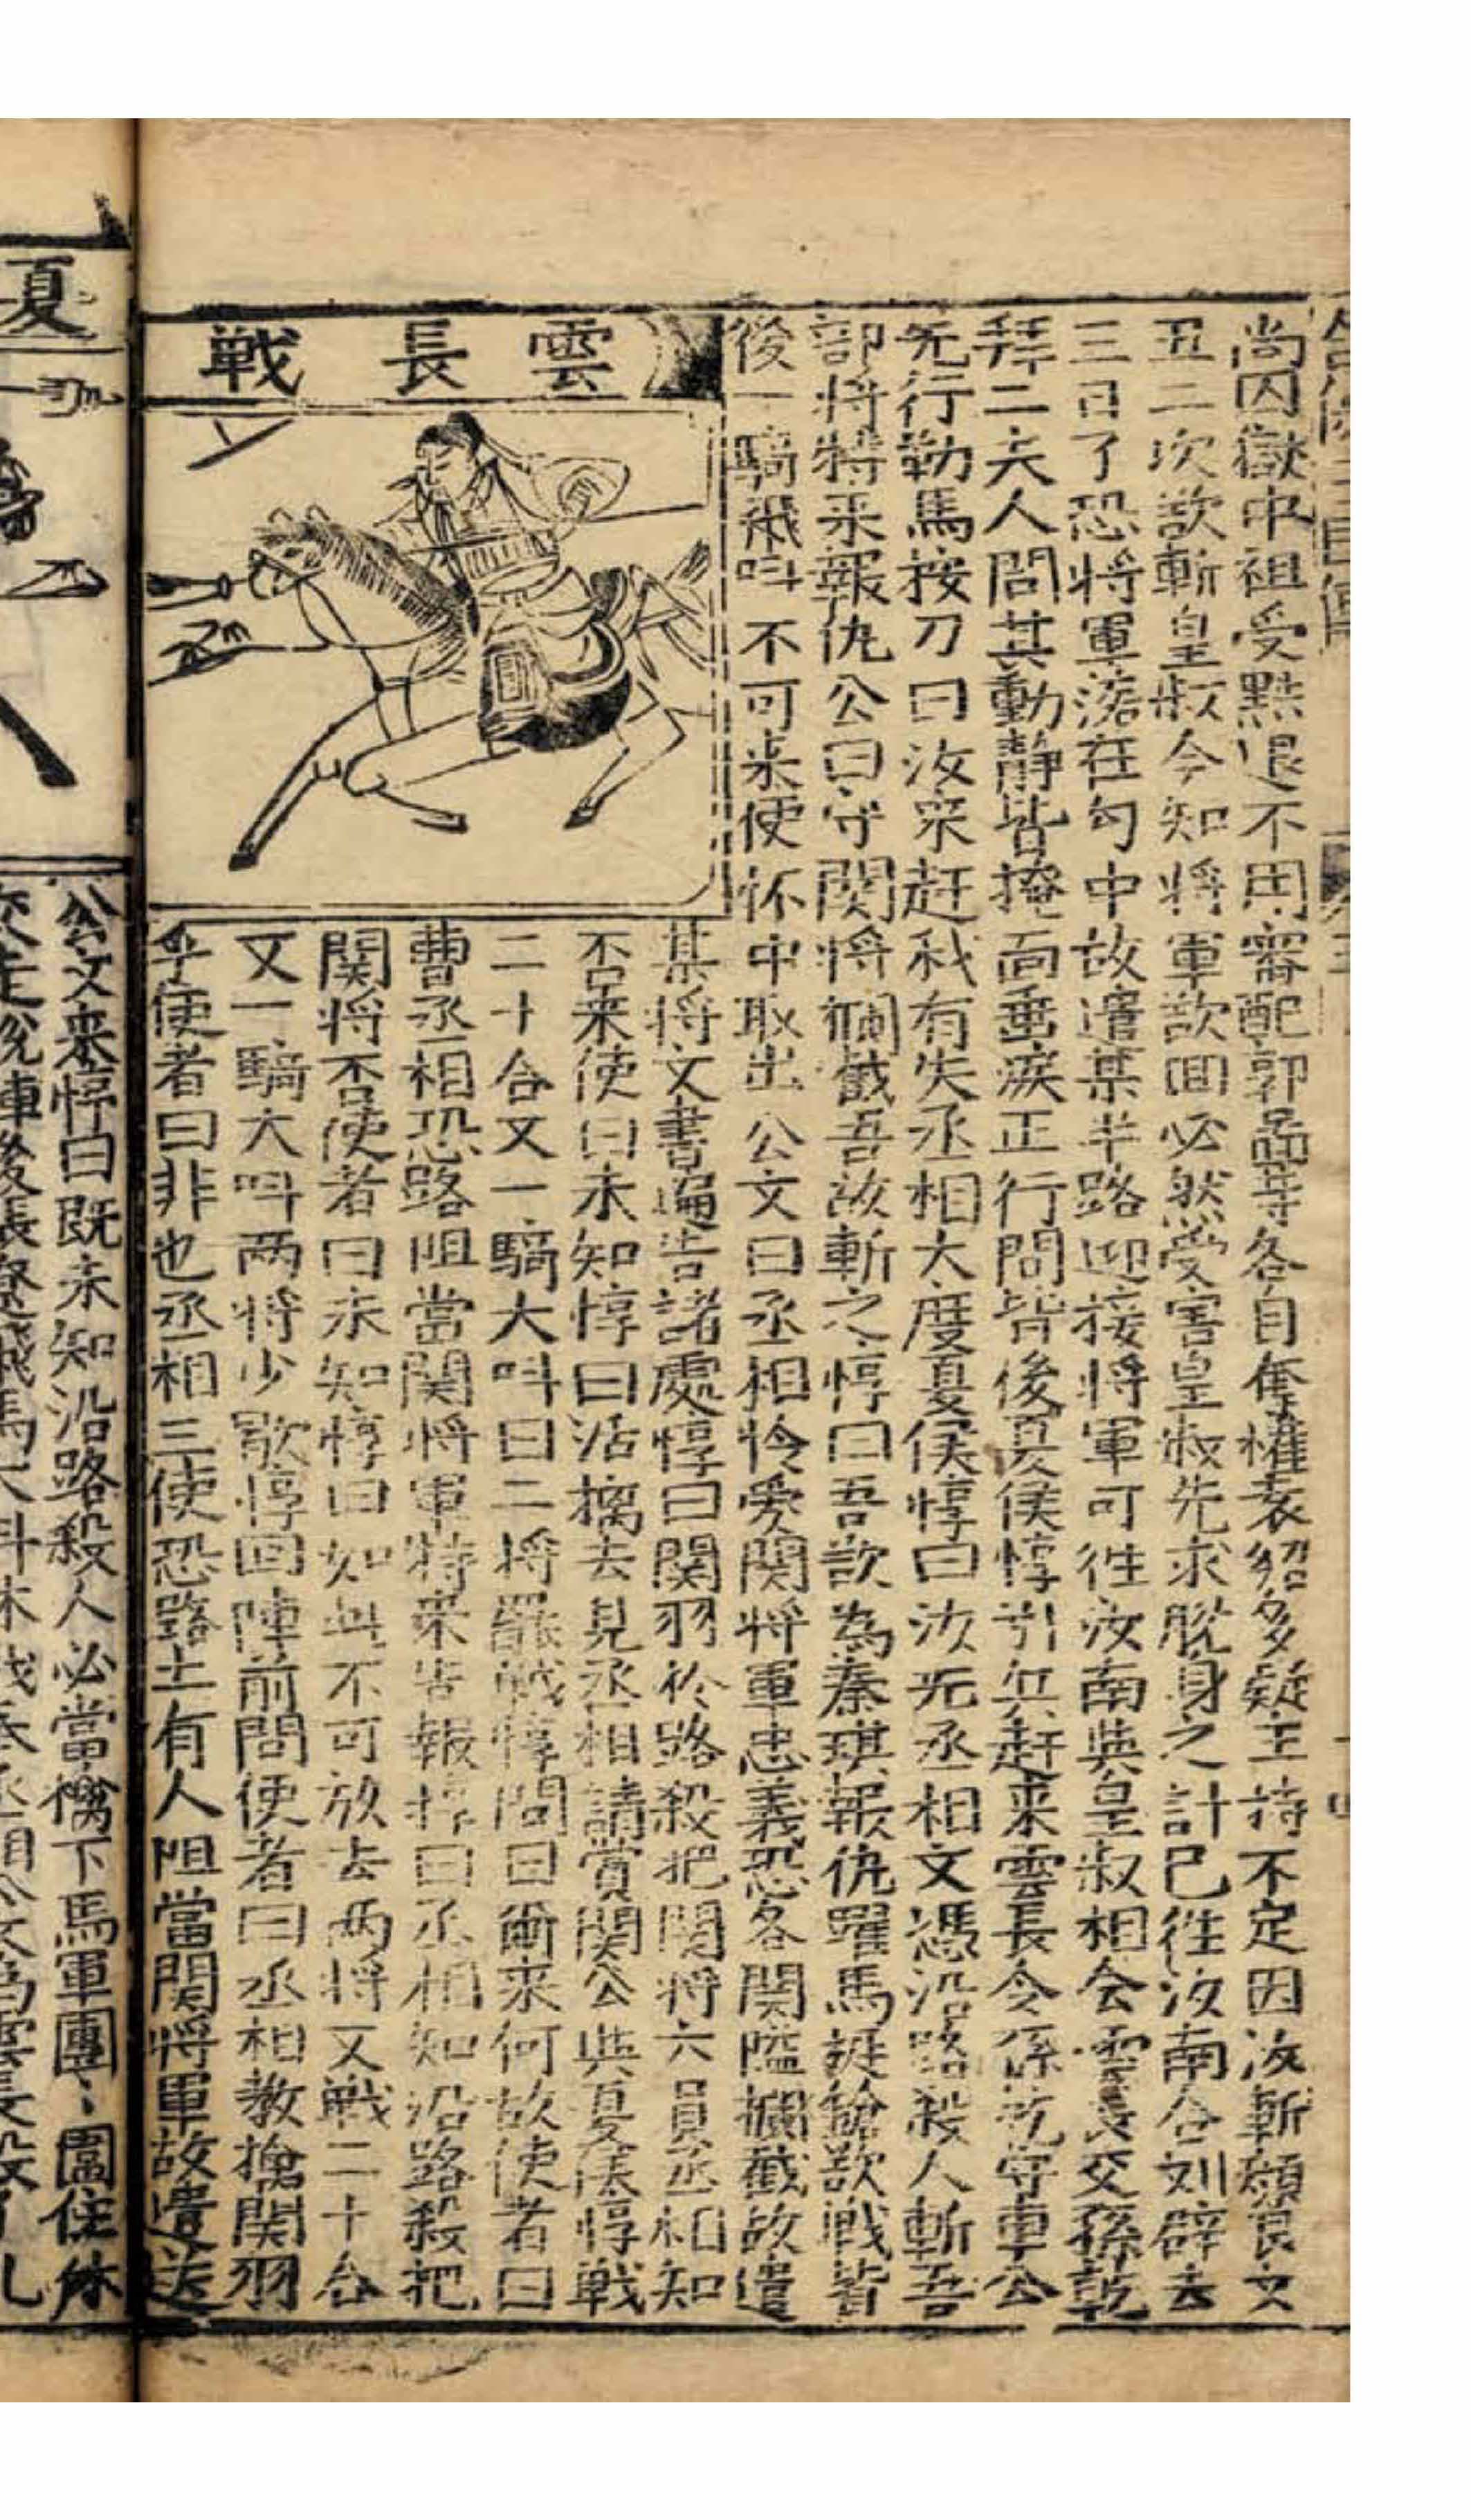 尚囚獄中祖受黜退不用審配郭啚等各自奪權袁紹多疑主持不定因汝斬顏良文
丑二次欲斬皇叔今知將軍欲回必然受害皇叔先求脫身之計已徃汝南合刘辟去
三日了恐將軍落在勾中故遣某半路迎接將軍可徃汝南與皇叔相会雲長交孫乾
拜二夫人問其動静皆掩面垂淚正行間背後夏侯惇引兵赶来雲長令孫乾守車公
先行勒馬按刀曰汝来赶我有失丞相大度夏侯惇曰汝无丞相文憑沿路殺人斬吾
部将特来報仇公曰守関将攔截吾故斬之惇曰吾欲為秦琪報仇躍馬挺鎗欲戦背
後一騎飛呌不可来使怀中取出公文曰丞相怜爱関将軍忠義恐各関隘攔截故遣
某将文書遍告諸處惇曰関羽於路殺把関将六員丞相知
否来使曰未知惇曰活擒去見丞相請賞関公與夏侯惇戦
二十合又一騎大呌曰二将罷戦惇問曰爾来何故使者曰
曹丞相恐路阻當関将軍特来告報惇曰丞相知沿路殺把
関将否使者曰未知惇曰如此不可放去两将又戦二十合
又一騎大呌两将少歇惇回陣前問使者曰丞相教擒関羽
乎使者曰非也丞相三使恐路上有人阻當関将軍故遣送
雲長戦
夏
公文来惇曰既未知沿路殺人必當擒下馬軍團〻圍住